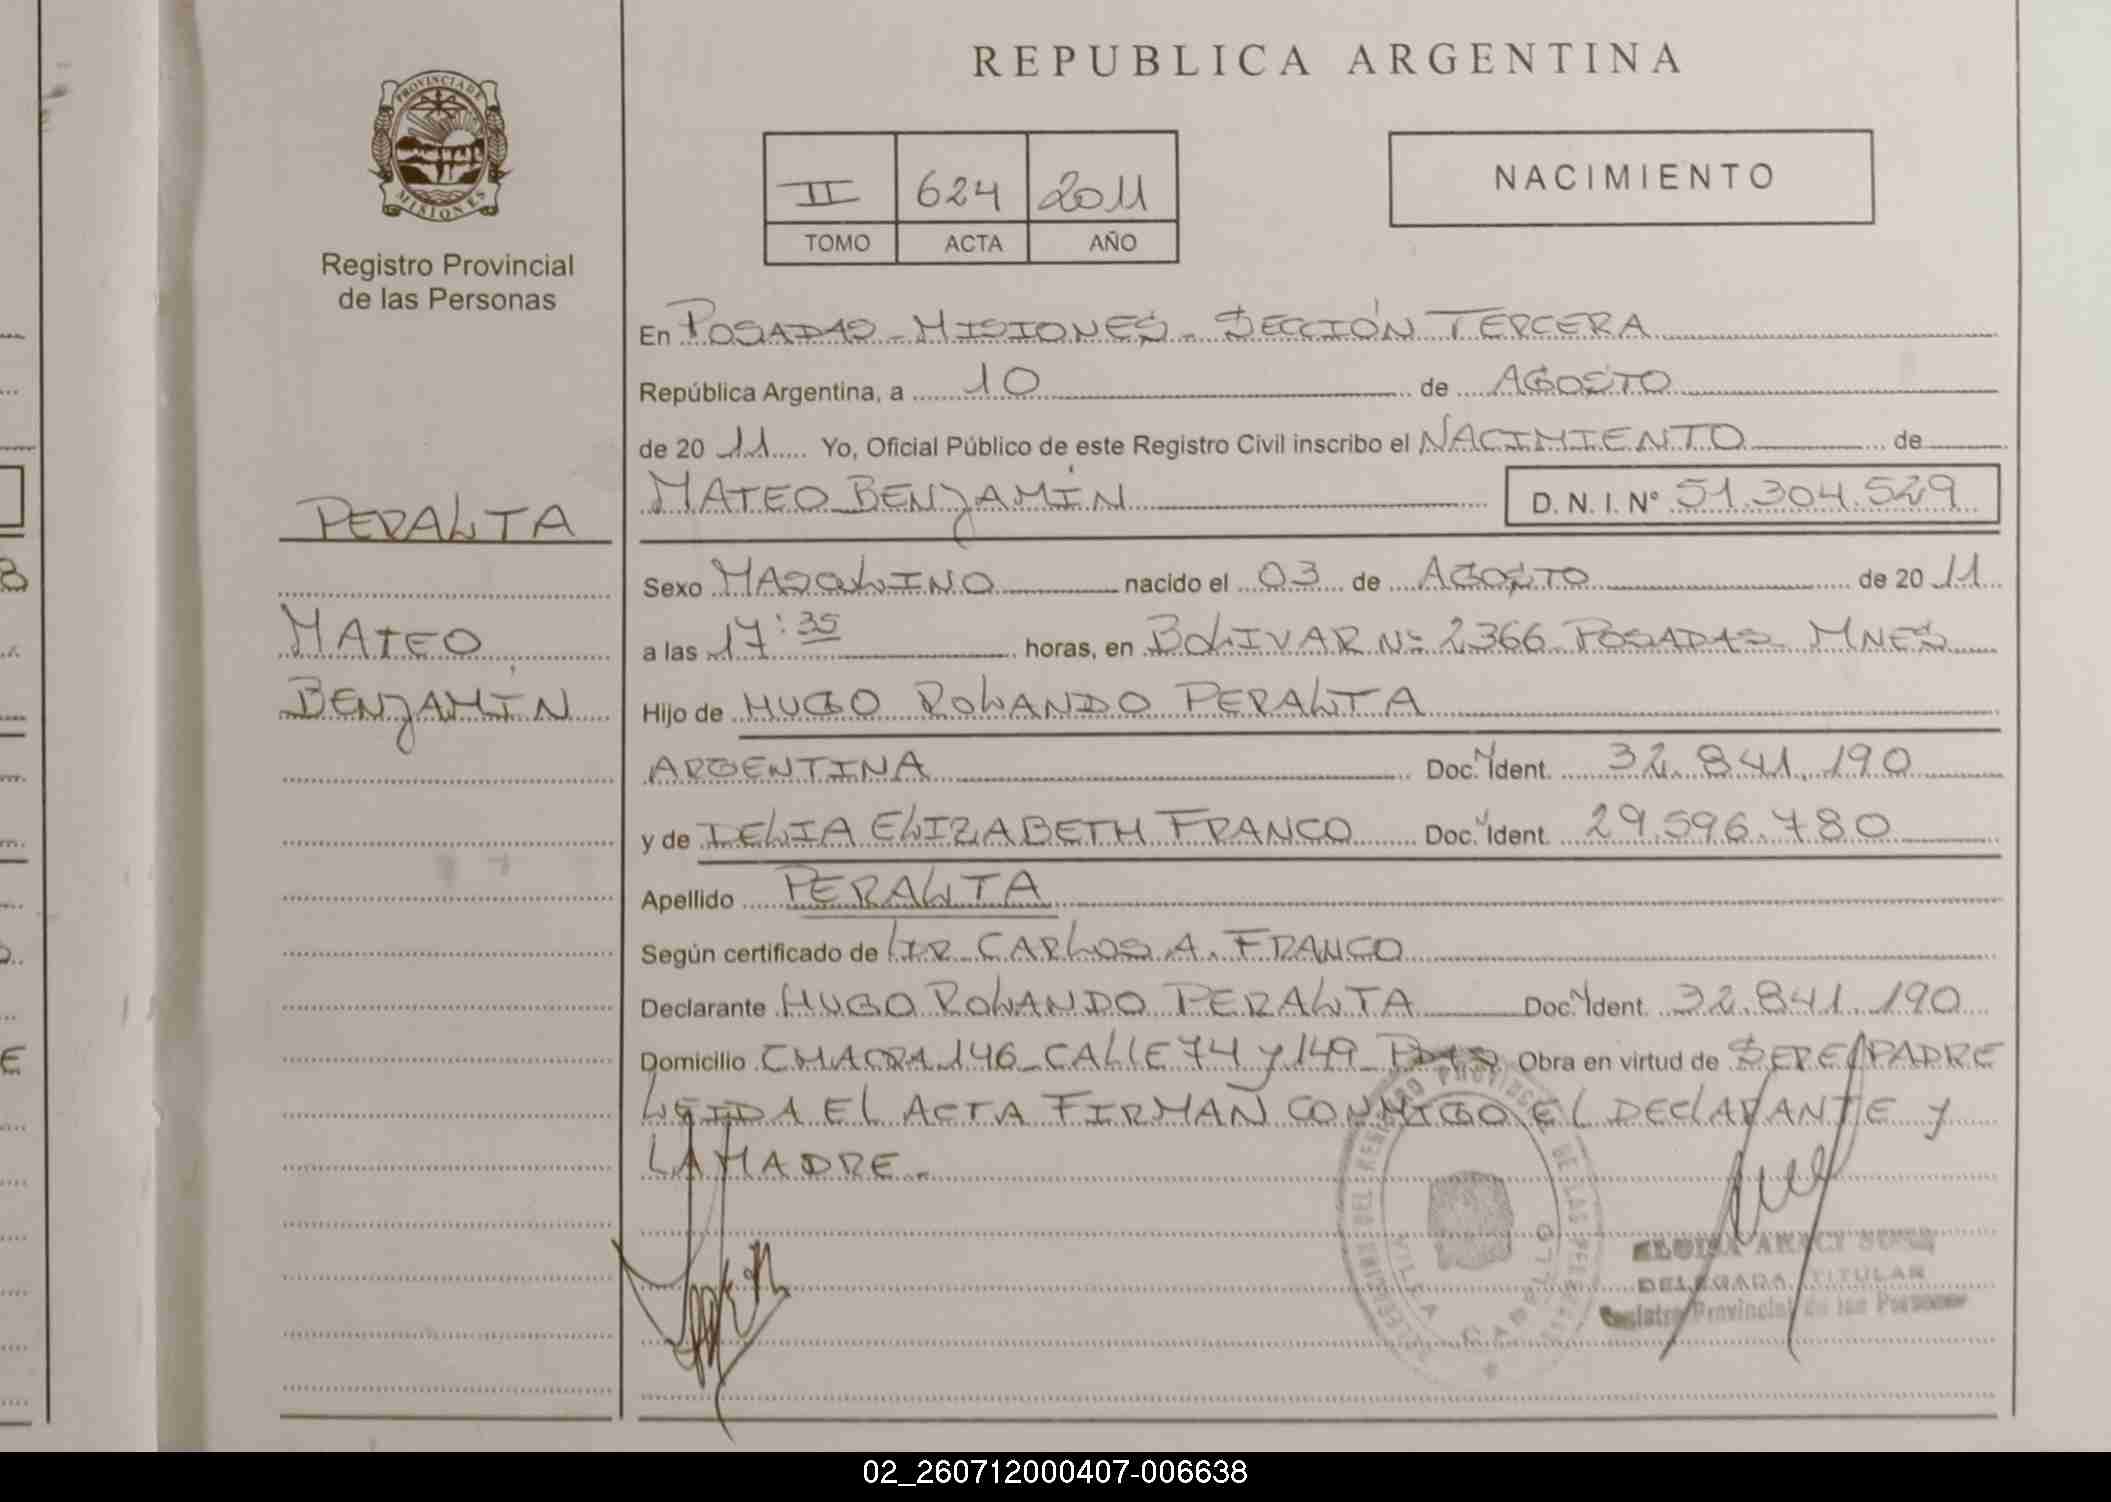 REPUBLICA ARGENTINA
PROVINCIA DE
MISIONES
Registro Provincial
de las Personas
II 624 2011
TOMO ACTA AÑO
NACIMIENTO
En POSADAS - MISIONES - SECCIÓN TERCERA
República Argentina, a 10 de AGOSTO
de 20 11 Yo, Oficial Público de este Registro Civil inscribo el NACIMIENTO de
MATEO BENJAMÍN D. N. I. N° 51.304.529
PERALTA
MATEO
BENJAMÍN
Sexo MASCULINO nacido el 03 de AGOSTO de 20 11
a las 17:35 horas, en BOLIVAR Nº 2366 POSADAS MNES
Hijo de HUGO ROLANDO PERALTA
ARGENTINA Doc. Ident. 32.841.190
y de DELIA ELIZABETH FRANCO Doc. Ident. 29.596.780
Apellido PERALTA
Según certificado de CARLOS A. FRANCO
Declarante HUGO ROLANDO PERALTA Doc. Ident. 32.841.190
Domicilio CHACRA 146 - CALLE 74 y 149 - PDAS Obra en virtud de SER EL PADRE
LEIDA EL ACTA FIRMAN CONMIGO EL DECLARANTE y
LA MADRE.-
DEL REGISTRO PROVINCIAL DE LAS
VILLA CABELLO
DELEGADA TITULAR
Registro Provincial de las Personas
02_260712000407-006638